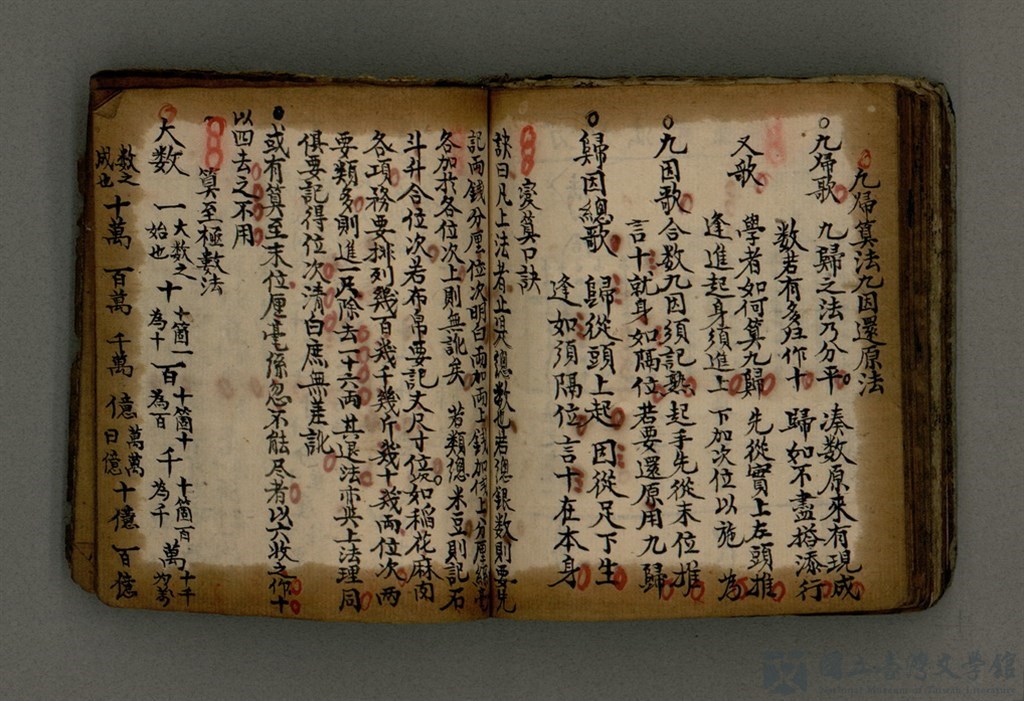 九歸算法九因還原法
九歸歌 九歸之法乃分平 湊数原來有現成
数若有多歸作十 歸如不盡搭添行
又歌 學者如何算九歸 先從實上左頭推
逢進起身須進上 下加次位以施為
九因歌 合数九因須記熟 起手先從末位推
言十就身如隔位 若要還原用九歸
歸因總歌 歸從頭上起 因從足下生
逢如須隔位 言十在本身
算口訣
訣曰凡上法者止是總数也若總銀数則要見
記兩錢分厘位次明白兩加兩上錢加錢上分厘絲毫
各加於各位次上則無訛矣 若類總米豆則記石
斗升合位次若布帛要記丈尺寸位如稻花麻
各項務要排列幾百幾千幾斤幾十幾兩位次兩
要類多則進一斤除去一十六兩其退法亦與上法理同
俱要記得位次清白庶無差訛
或有算至末位厘毫絲忽不能尽者以六收之作十
以四去之不用
算至極数法
大数 一 大数之始也 十 十箇一為十 百 十箇十為百 千 十箇百為千 萬 十千為萬
数之成也 十萬 百萬 千萬 億 萬萬曰億 十億 百億
國立臺灣文學館
National Museum of Taiwan Literature